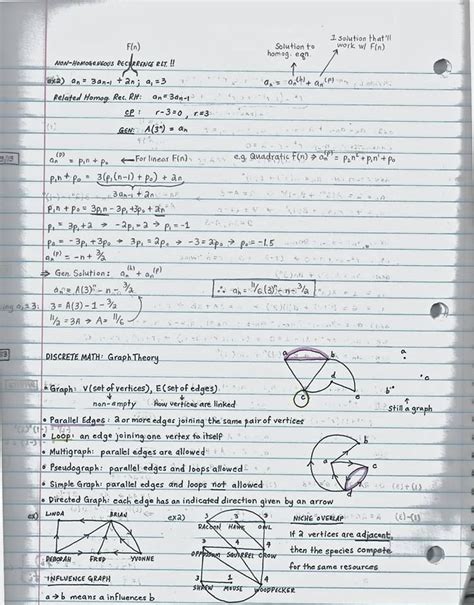 F(n)
Solution to homog. eqn.
1 solution that'll work w/ F(n)
NON-HOMOGENEOUS RECURRENCE REL. !!
ex2) aₙ = 3aₙ₋₁ + 2n; a₁ = 3
aₙ = aₙ⁽ʰ⁾ + aₙ⁽ᵖ⁾
Related Homog. Rec. RH: aₙ = 3aₙ₋₁
CP: r - 3 = 0, r = 3
GEN: A(3ⁿ) = aₙ
aₙ⁽ᵖ⁾ = p₁n + p₀ ← For linear F(n)
e.g. Quadratic F(n) ⇒ aₙ⁽ᵖ⁾ = p₂n² + p₁n + p₀
p₁n + p₀ = 3(p₁(n-1) + p₀) + 2n
3aₙ₋₁ + 2n
p₁n + p₀ = 3p₁n - 3p₁ + 3p₀ + 2n
p₁ = 3p₁ + 2 → -2p₁ = 2 → p₁ = -1
p₀ = -3p₁ + 3p₀ → 3p₁ = 2p₀ → -3 = 2p₀ → p₀ = -1.5
aₙ⁽ᵖ⁾ = -n + 3/2
⇒ Gen. Solution: aₙ⁽ʰ⁾ + aₙ⁽ᵖ⁾
aₙ = A(3)ⁿ - n - 3/2
∴ aₙ = 11/6 (3)ⁿ - n - 3/2
3 = A(3) - 1 - 3/2
11/2 = 3A → A = 11/6
DISCRETE MATH: Graph Theory
a b
a
d
c e
b c
Still a graph
• Graph: V (set of vertices), E (set of edges)
non-empty How vertices are linked
• Parallel Edges: 2 or more edges joining the same pair of vertices
• Loop: an edge joining one vertex to itself
• Multigraph: parallel edges are allowed
b
• Pseudograph: parallel edges and loops allowed
a c
• Simple Graph: parallel edges and loops not allowed
d
• Directed Graph: each edge has an indicated direction given by an arrow
ex) LINDA BRIAN
DEBORAH FRED YVONNE
INFLUENCE GRAPH
a → b means a influences b
ex2)
3 3 3
RACOON HAWK OWL
OPPOSUM SQUIRREL CROW
SHREW MOUSE WOODPECKER
NICHE OVERLAP
If 2 vertices are adjacent,
then the species compete
for the same resources